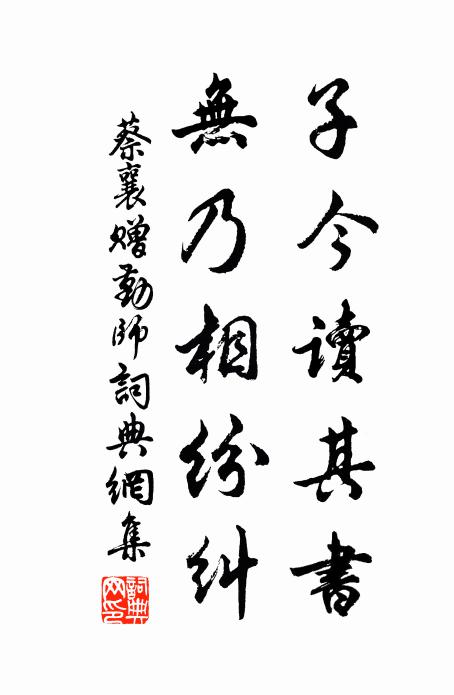 子今讀其書
無乃相紛糾
蔡襄贈勤師詞典網集
詞典網印